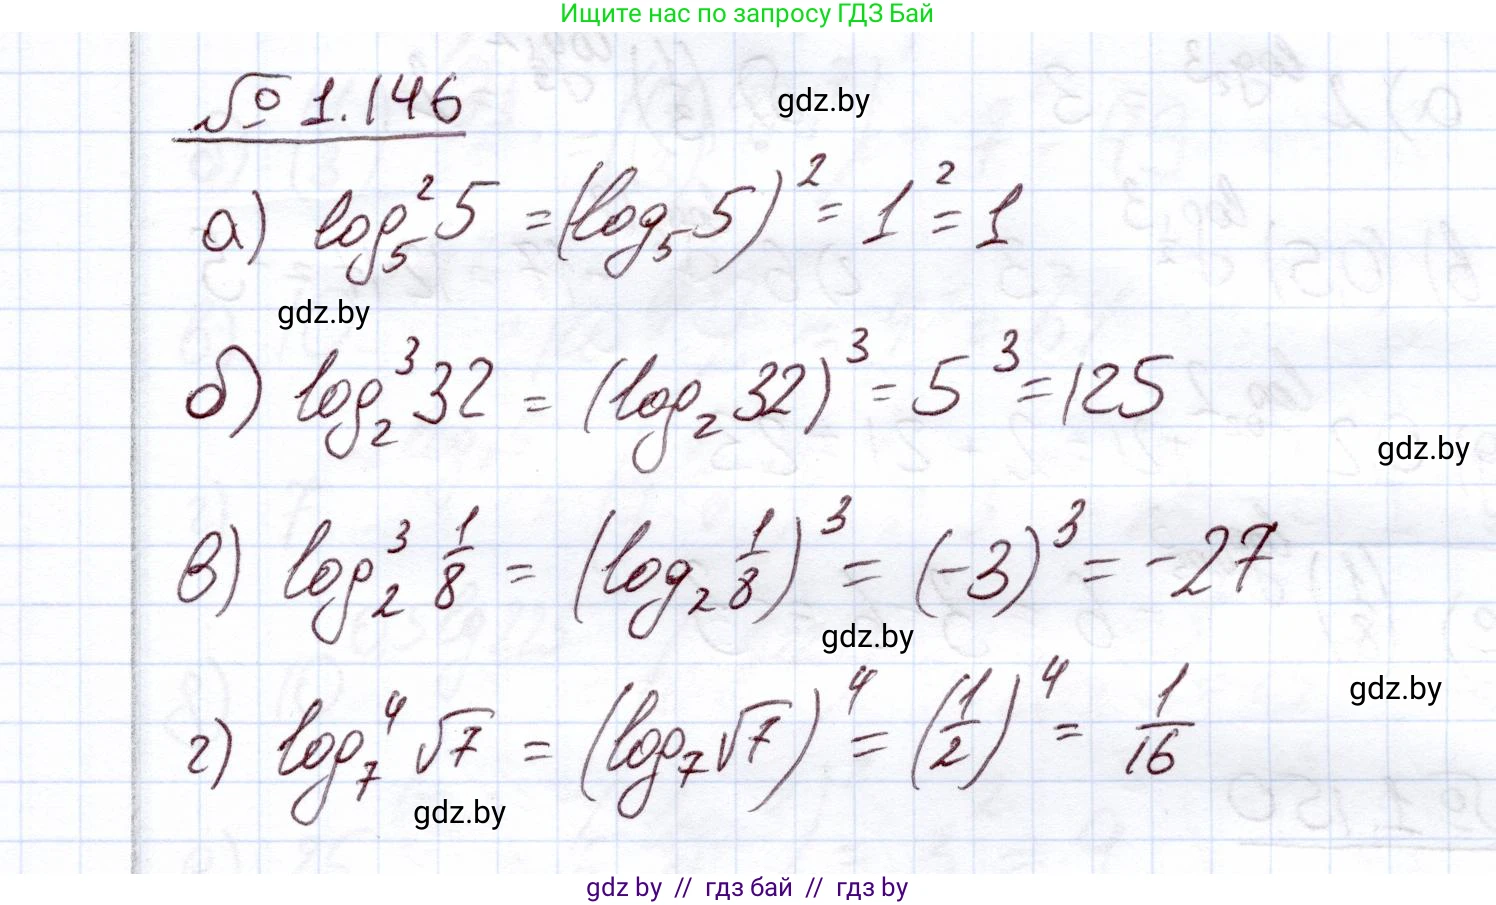 Ищите нас по запросу ГДЗ Бай
№ 1.146
gdz.by
а) log₅²5 = (log₅5)² = 1² = 1
gdz.by
б) log₂³32 = (log₂32)³ = 5³ = 125
gdz.by
в) log₂³ 1/8 = (log₂ 1/8)³ = (-3)³ = -27
gdz.by
gdz.by
г) log₇⁴√7 = (log₇√7)⁴ = (1/2)⁴ = 1/16
gdz.by
gdz by // гдз бай // гдз by